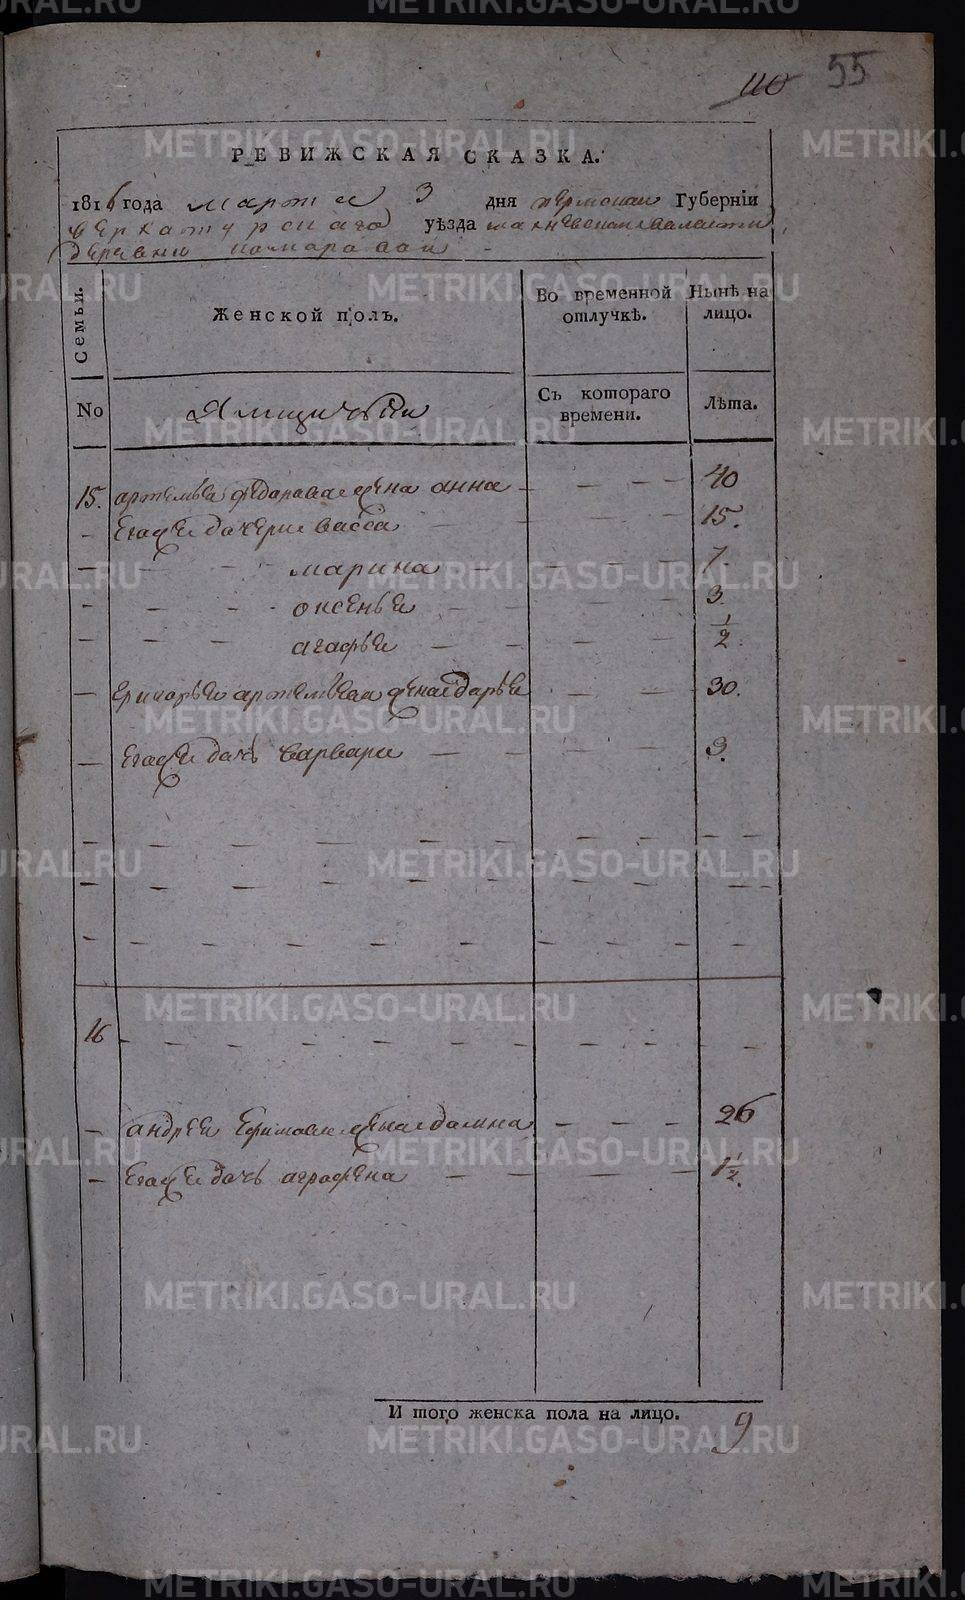 110 55
РЕВИЖСКАЯ СКАЗКА.
1816 года марта 3 дня пермской Губернїи
верхотурскаго уѣзда махневской валости
деревни комаравай
Семьи. Женской полъ. Во временной отлучкѣ. Нынѣ на лицо.
No Ямщичьи Съ котораго времени. Лѣта.
15. артемья федарава жена анна 40
Егоже дочери васса 15.
марина 7
оксенья 3.
агафья 1/2.
григорья артемьева жена дарья 30.
Егоже дочь варвара 9.
16
андрея Ефимава жена домна 26
Егоже дочь аграфена 1 1/2.
И того женска пола на лицо. 9
METRIKI.GASO-URAL.RU